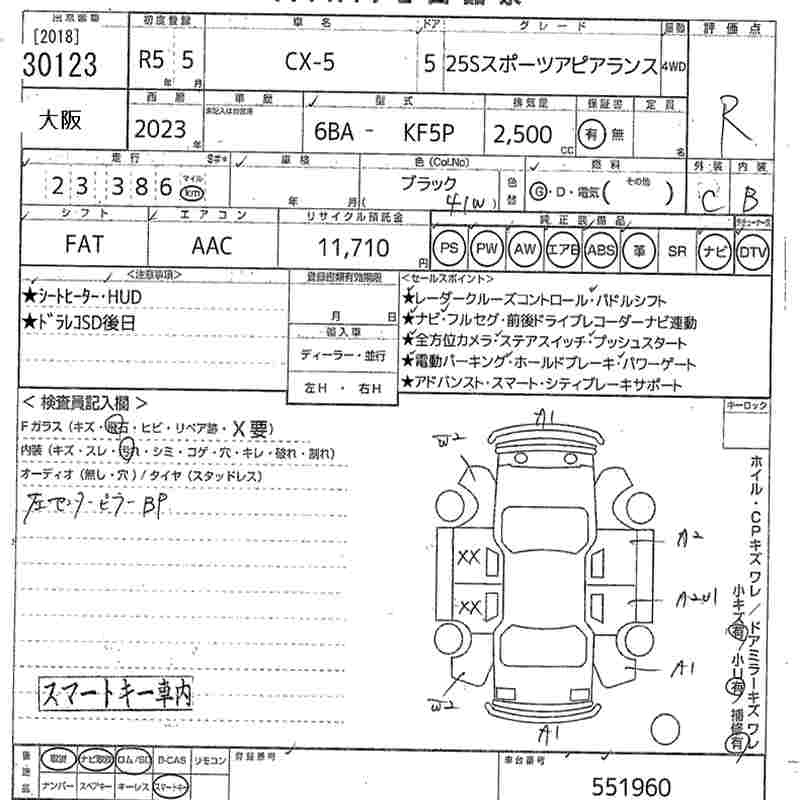 出品番号 初度登録 車名 ドア グレード 駆動 評価点
[2018]
30123 R5 5 CX-5 5 25Sスポーツアピアランス 4WD R
年 月
西暦 車歴 型式 排気量 保証書 定員
大阪 2023 年 未記入は自家用 6BA - KF5P 2,500 CC 有 無 名
走行 車検 色(Col.No) 燃料 外装 内装
23386 マイル km 年 月( ブラック 41W) 色替 G・D・電気( その他 ) C B
シフト エアコン リサイクル預託金 純正装備品
FAT AAC 11,710 円 PS PW AW エアB ABS 革 SR ナビ DTV
<注意事項> 登録書類有効期限 <セールスポイント>
★シートヒーター・HUD
★ドラレコSD後日
月 日
輸入車
ディーラー・並行
左H ・ 右H
★レーダークルーズコントロール・パドルシフト
★ナビ・フルセグ・前後ドライブレコーダーナビ連動
★全方位カメラ・ステアスイッチ・プッシュスタート
★電動パーキング・ホールドブレーキ・パワーゲート
★アドバンスト・スマート・シティブレーキサポート
<検査員記入欄> キーロック
Fガラス(キズ・飛石・ヒビ・リペア跡・X要)
内装(キズ・スレ・汚れ・シミ・コゲ・穴・キレ・破れ・割れ)
オーディオ(無し・穴)/タイヤ(スタッドレス)
左センターピラーBP
A1
W2
A2
XX
XX
A2U1
A1
W2
A1
ホイル・CPキズワレ/ドアミラーキズワレ
小キズ有/小U有/補修有
スマートキー車内
後送品 取説 ナビ取説 ロム/SD B-CAS リモコン 登録番号 車台番号
ナンバー スペアキー キーレス スマートキー 551960